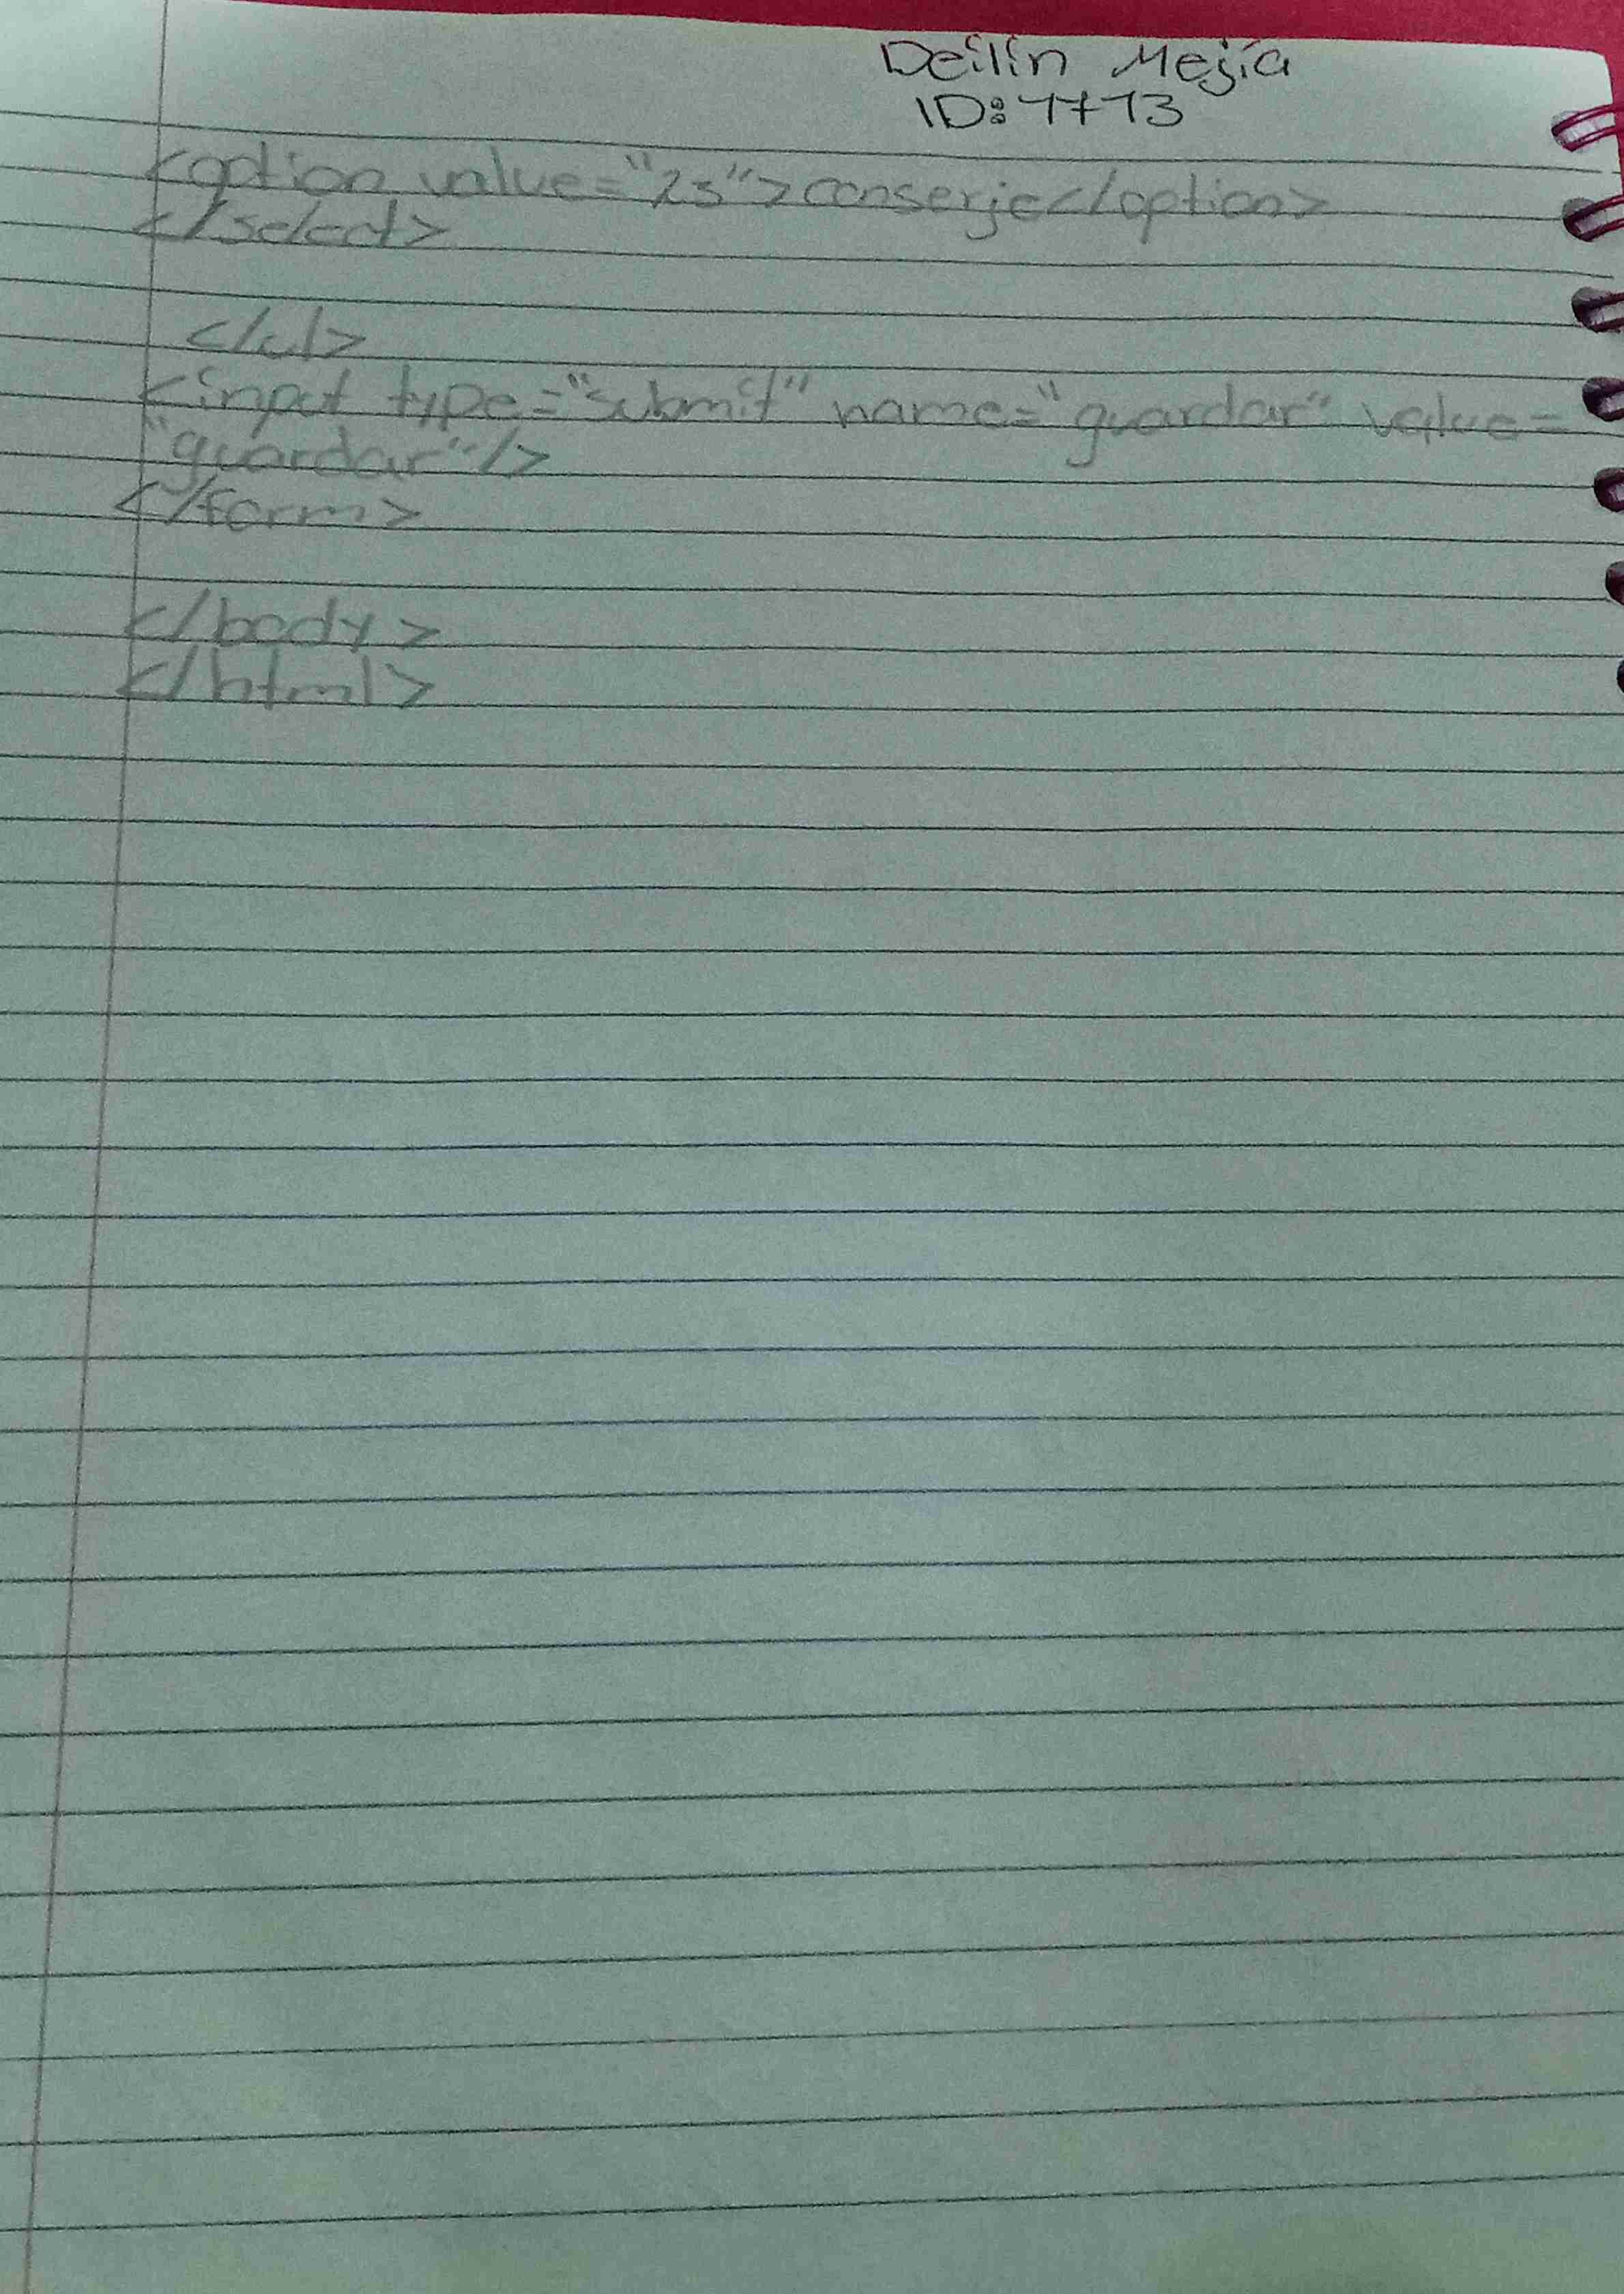 Deilin Mejía
ID: 7773
<option value="23">conserje</option>
</select>
</ul>
<input type="submit" name="guardar" value=
"guardar"/>
</form>
</body>
</html>